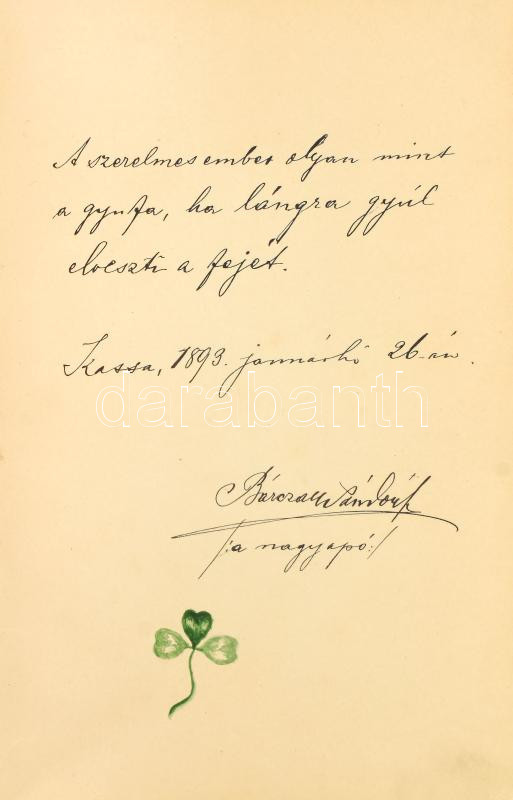 A szerelmes ember olyan mint
a gyufa, ha lángra gyúl
elveszti a fejét.
Kassa, 1893. januárhó 26-án.
darabanth
Sándor
/:a nagyapó:/